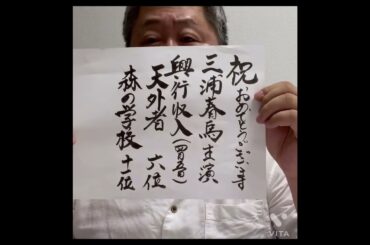 祝
おめでとうございます
三浦春馬主演
興行収入(四月五日)
天外者 六位
森の学校 十一位
VITA